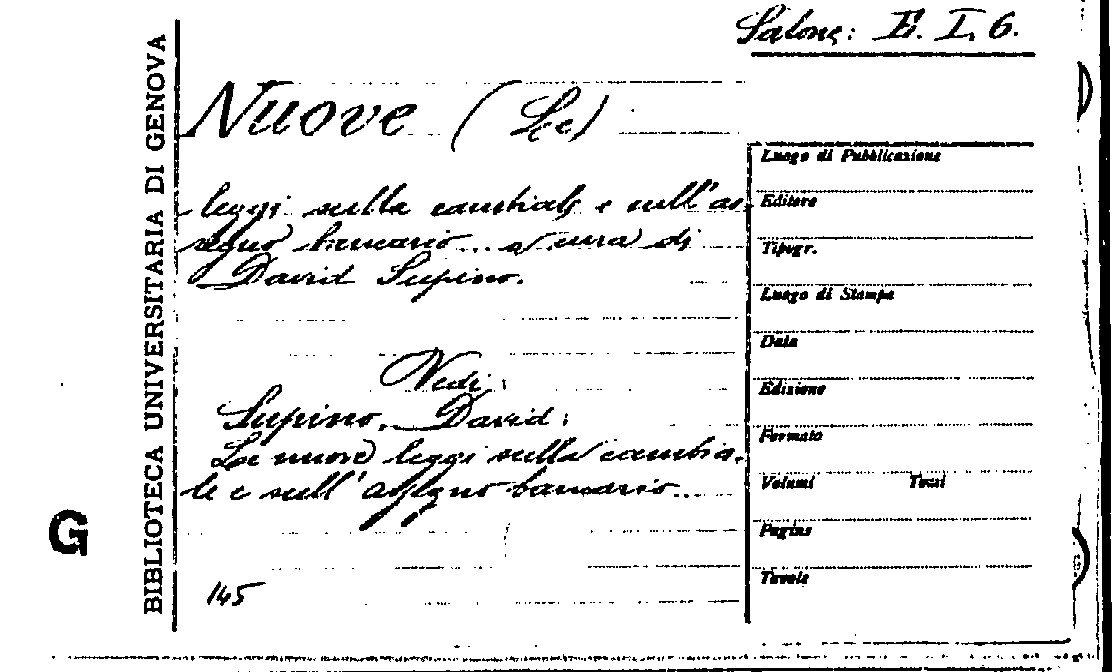 Salone: E. I. 6.
BIBLIOTECA UNIVERSITARIA DI GENOVA
Nuove (Le)
leggi sulla cambiale e sull'as-
segno bancario... a cura di
David Supino.
Vedi:
Supino, David:
Le nuove leggi sulla cambia-
le e sull'assegno bancario...
145
G
Luogo di Pubblicazione
Editore
Tipogr.
Luogo di Stampa
Data
Edizione
Formato
Volumi Tomi
Pagine
Tavole